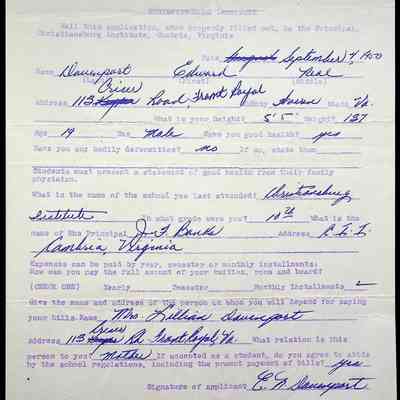 CHRISTIANSBURG INSTITUTE
Mail this application, when properly filled out, to the Principal,
Christiansburg Institute, Cambria, Virginia
Date August September 4, 1950
Name Davenport Edward Neal
(First) (Middle)
Criser
Address 113 Road Front Royal County Warren State Va.
What is your height? 5' 5" Weight? 127
Age 19 Sex Male Have you good health? yes
Have you any bodily deformities? no If so, state them
Students must present a statement of good health from their family
physician.
What is the name of the school you last attended? Christiansburg
Institute In what grade were you? 10th What is the
name of the Principal J. F. Banks Address C. I. I.
Cambria, Virginia
Expenses can be paid by year, semester or monthly installments.
How can you pay the full amount of your tuition, room and board?
(CHECK ONE) Yearly Semester Monthly Installments ✓
Give the name and address of the person on whom you will depend for paying
your bills. Name Mrs. Lillian Davenport
Criser
Address 113 Rd. Front Royal, Va. What relation is this
person to you? Mother If accepted as a student, do you agree to abide
by the school regulations, including the prompt payment of bills? yes
Signature of applicant E. N. Davenport